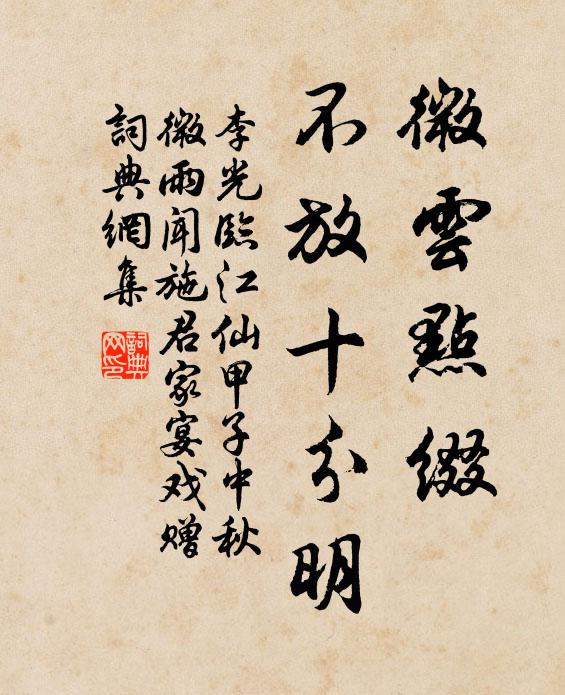 微雲點綴
不放十分明
李光臨江仙甲子中秋
微雨聞施君家宴戏赠
詞典網集
詞典网印